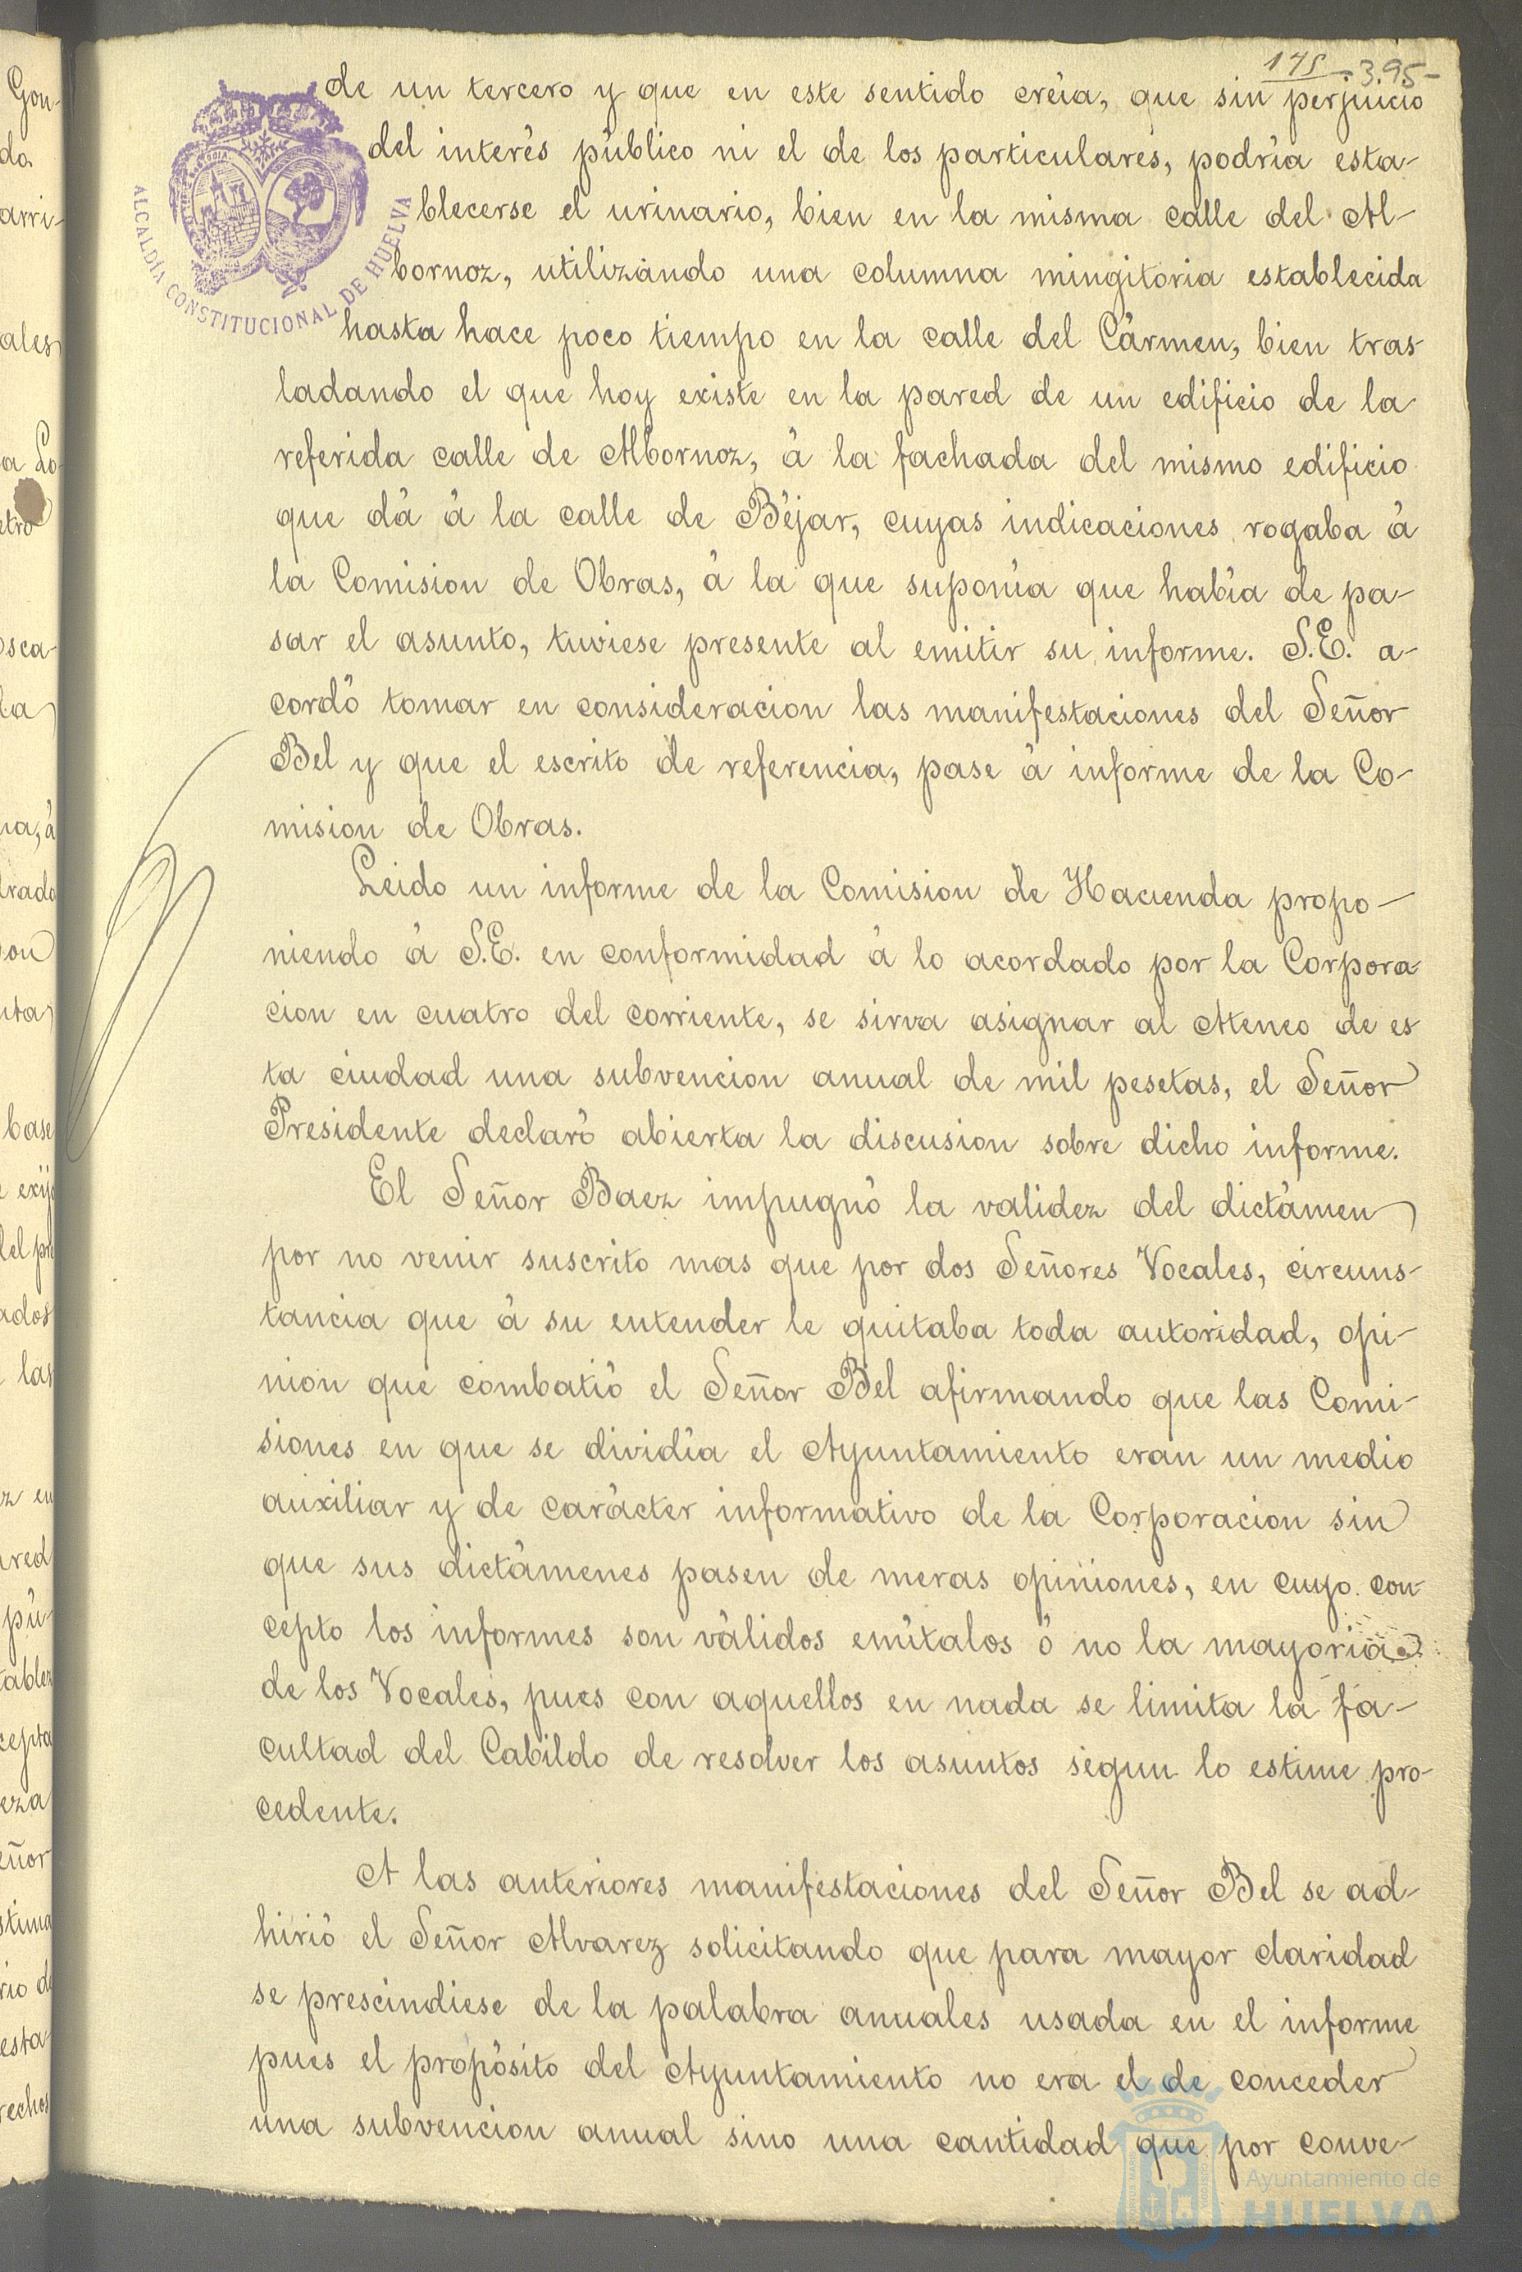 175 3.95-
de un tercero y que en este sentido creia, que sin perjuicio
del interés público ni el de los particulares, podria esta-
blecerse el urinario, bien en la misma calle del Al-
bornoz, utilizando una columna mingitoria establecida
hasta hace poco tiempo en la calle del Cármen, bien tras
ladando el que hoy existe en la pared de un edificio de la
referida calle de Albornoz, á la fachada del mismo edificio
que dá á la calle de Béjar, cuyas indicaciones rogaba á
la Comision de Obras, á la que suponia que habia de pa-
sar el asunto, tuviese presente al emitir su informe. S.E. a-
cordó tomar en consideracion las manifestaciones del Señor
Bel y que el escrito de referencia, pase á informe de la Co-
mision de Obras.
Leido un informe de la Comision de Hacienda propo-
niendo á S.E. en conformidad á lo acordado por la Corpora
cion en cuatro del corriente, se sirva asignar al Ateneo de es
ta ciudad una subvencion anual de mil pesetas, el Señor
Presidente declaró abierta la discusion sobre dicho informe.
El Señor Baez impugnó la validez del dictámen
por no venir suscrito mas que por dos Señores Vocales, circuns-
tancia que á su entender le quitaba toda autoridad, opi-
nion que combatió el Señor Bel afirmando que las Comi-
siones en que se dividía el Ayuntamiento eran un medio
auxiliar y de carácter informativo de la Corporacion sin
que sus dictámenes pasen de meras opiniones, en cuyo con-
cepto los informes son válidos emítalos ó no la mayoria
de los Vocales, pues con aquellos en nada se limita la fa-
cultad del Cabildo de resolver los asuntos segun lo estime pro-
cedente.
A las anteriores manifestaciones del Señor Bel se ad-
hirió el Señor Alvarez solicitando que para mayor claridad
se prescindiese de la palabra anuales usada en el informe
pues el propósito del Ayuntamiento no era el de conceder
una subvencion anual sino una cantidad que por conve-
ALCALDÍA CONSTITUCIONAL DE HUELVA
Ayuntamiento de
HUELVA